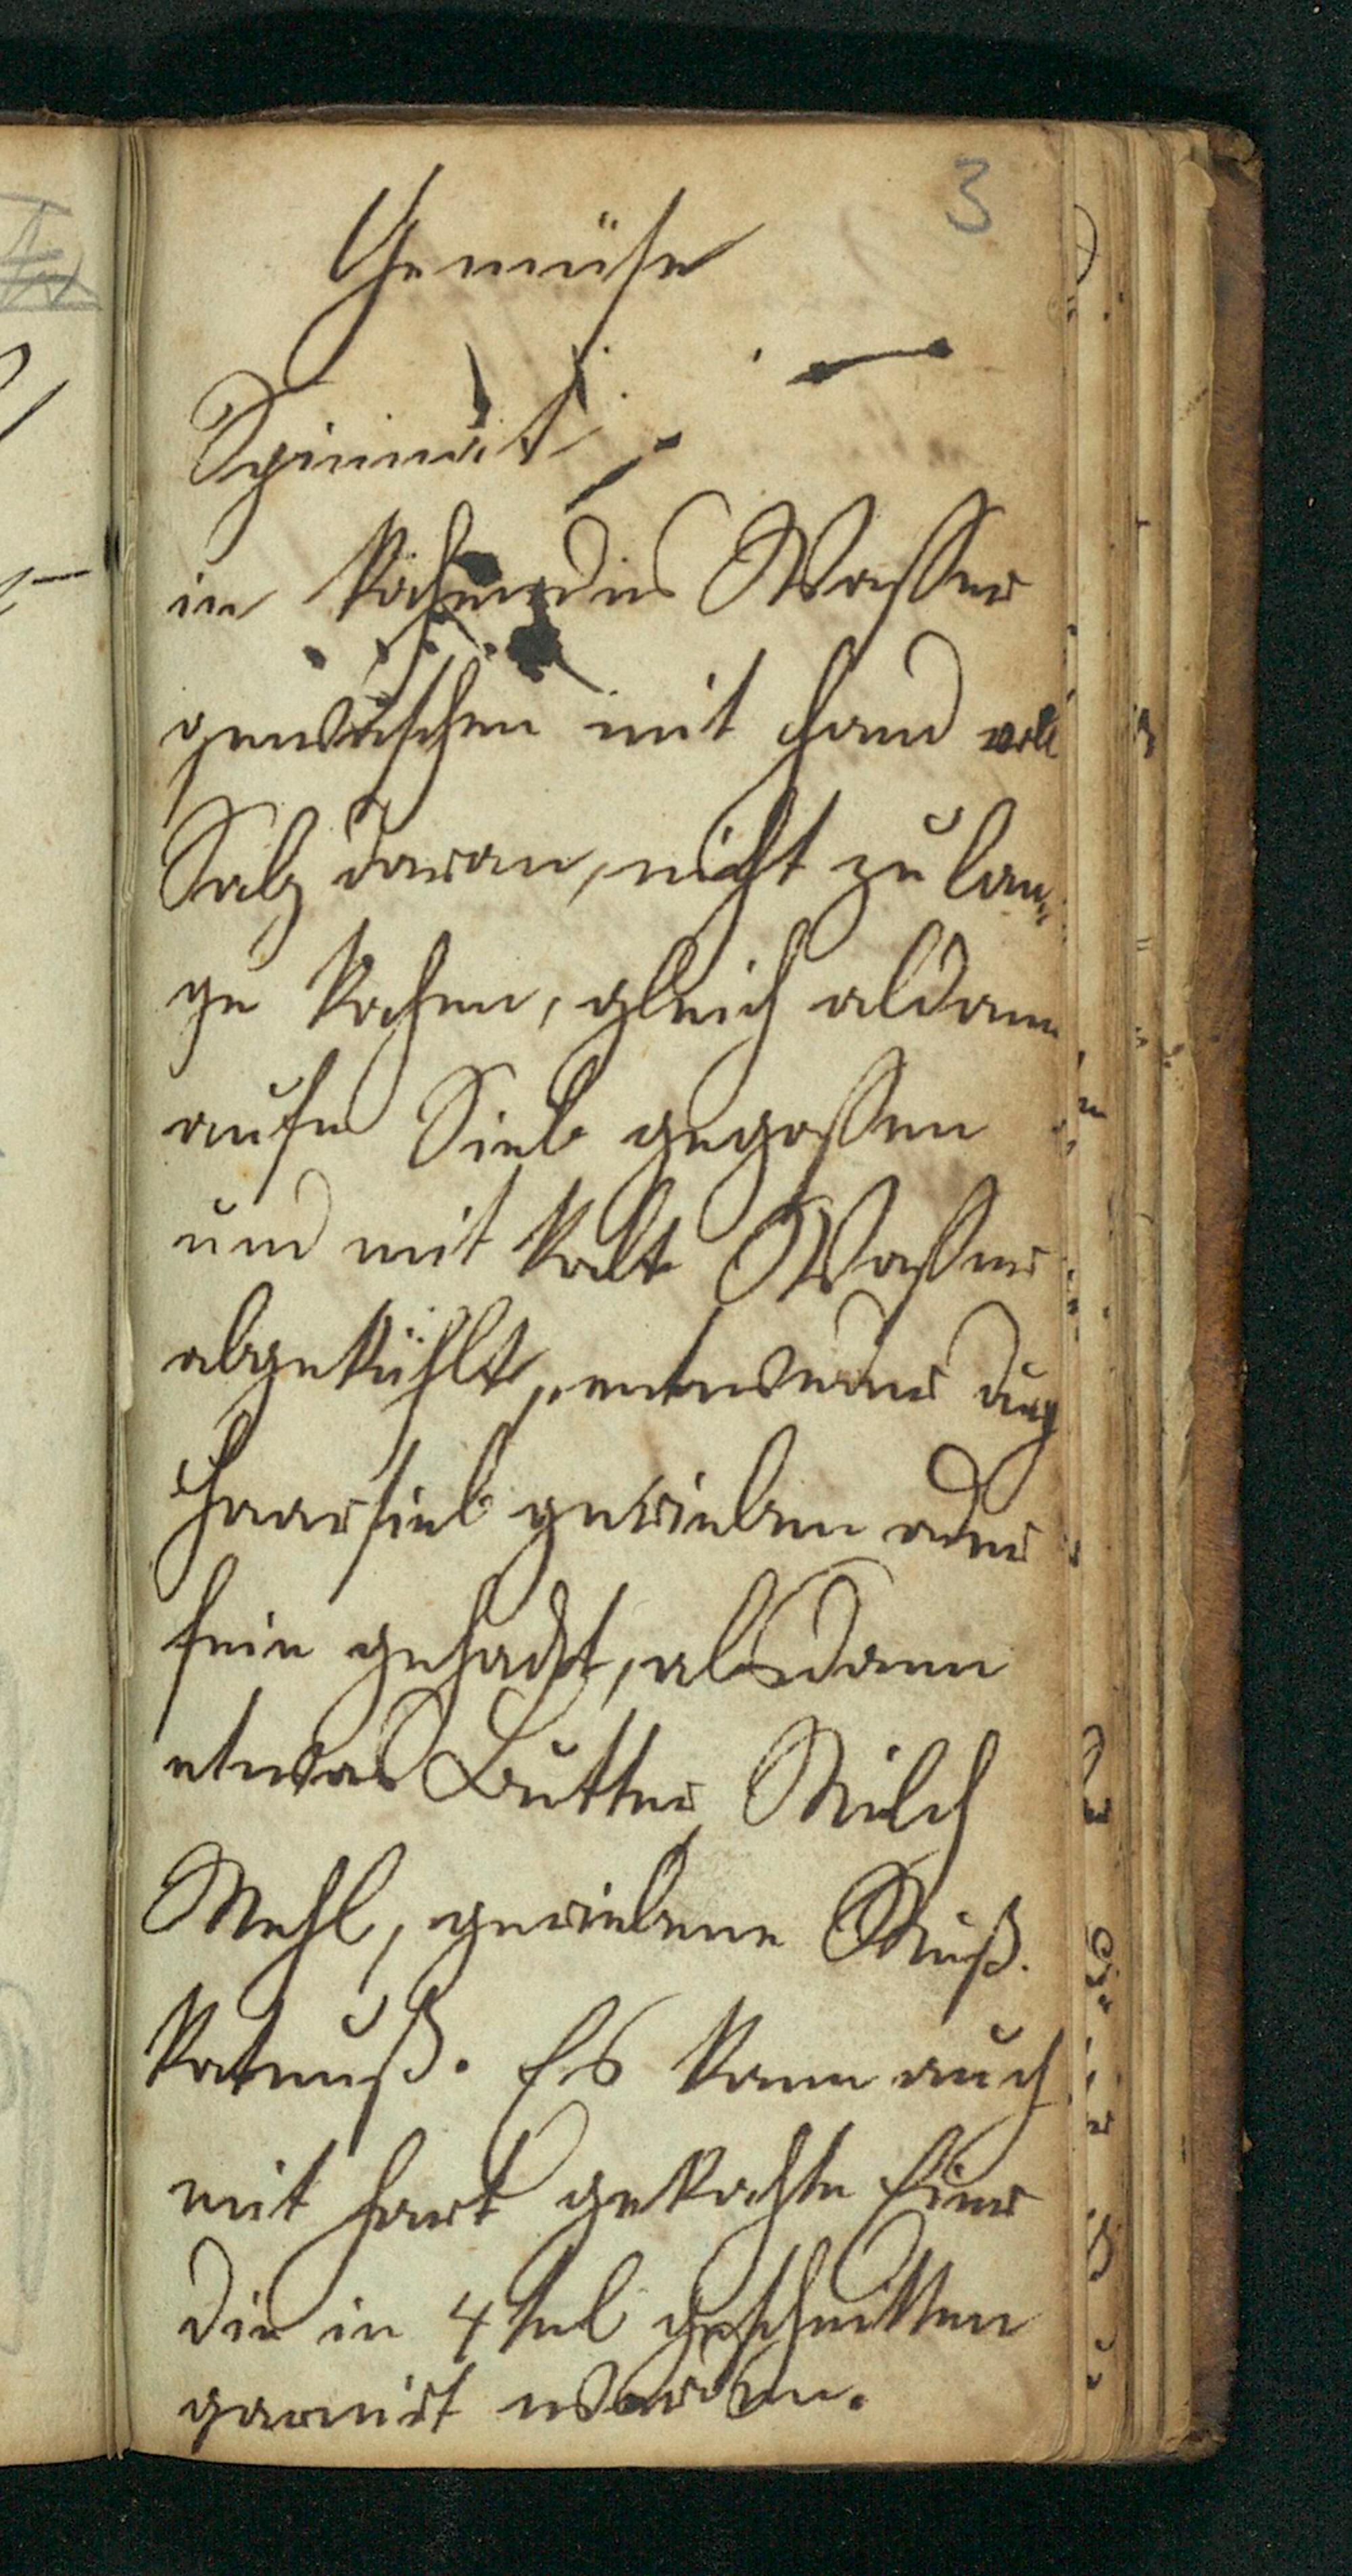 3
Gemüse
Spinnat
in kochendes Wasser
gewaschen mit Hand voll
Salz daran, nicht zu lan„
ge kochen, gleich aldann
aufn Sieb gegossen
und mit kalt Wasser
abgekühlt, entweder durch
Haarsieb gerieben oder
fein gehackt, alsdann
etwas Butter, Milch
Mehl, geriebene Muß.
katnuß. Es kann auch
mit hart gekochte Eier
die in 4tel geschnitten
garnirt werden.